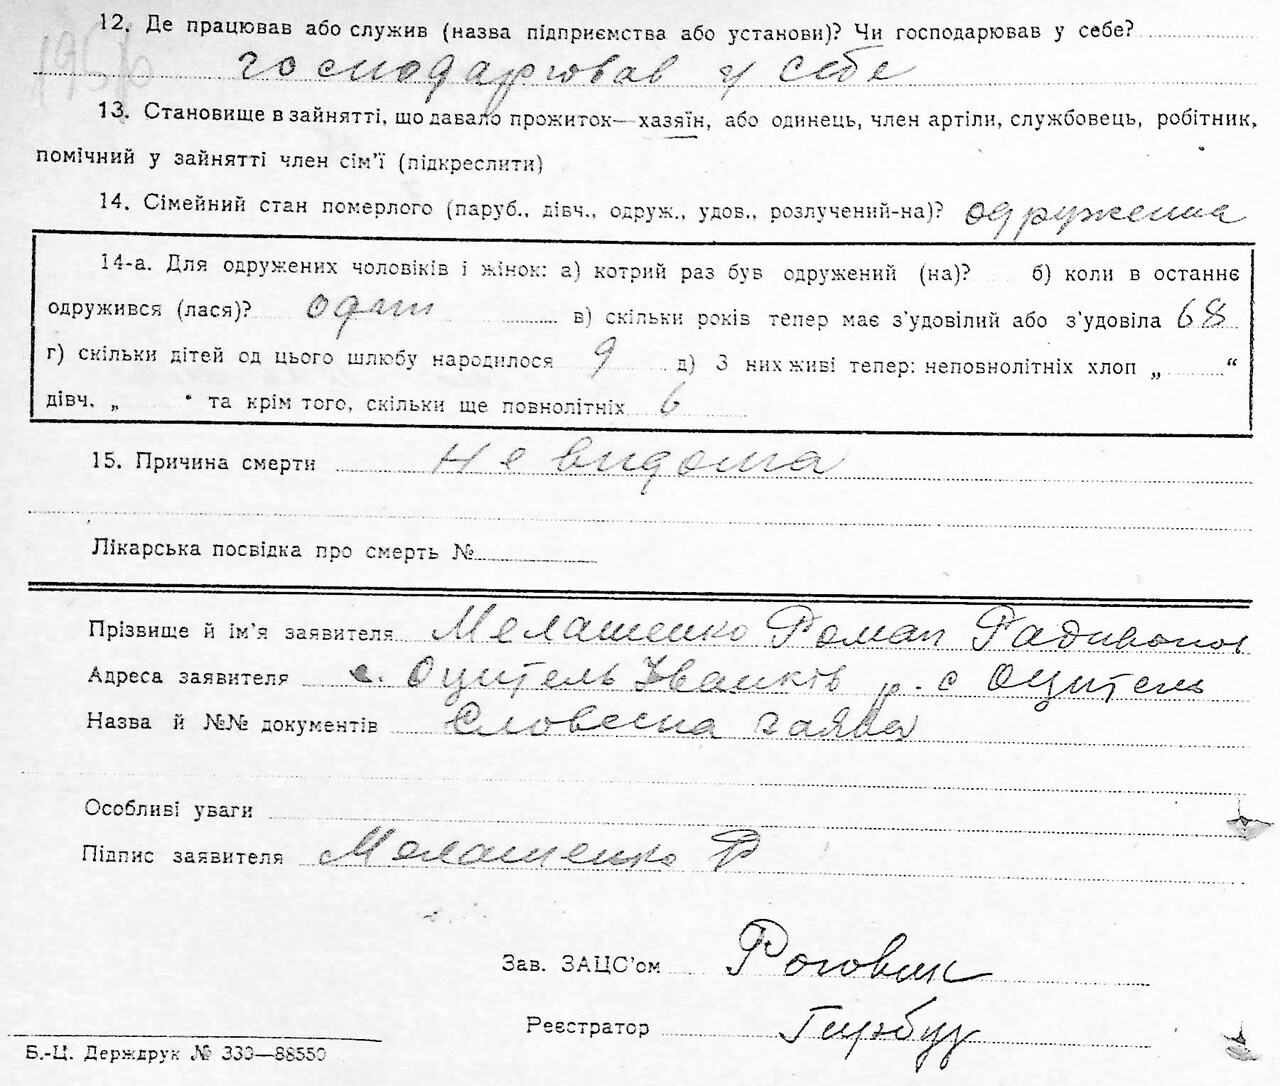 12. Де працював або служив (назва підприємства або установи)? Чи господарював у себе?
господарював у себе
13. Становище в зайнятті, що давало прожиток—хазяїн, або одинець, член артіли, службовець, робітник,
помічний у зайнятті член сім'ї (підкреслити)
14. Сімейний стан померлого (паруб., дівч., одруж., удов., розлучений-на)? одруженна
14-а. Для одружених чоловіків і жінок: а) котрий раз був одружений (на)? б) коли в останнє
одружився (лася)? один в) скільки років тепер має з'удовілий або з'удовіла 68
г) скільки дітей од цього шлюбу народилося 9 д) З них живі тепер: неповнолітніх хлоп „ “
дівч. „ “ та крім того, скільки ще повнолітніх 6
15. Причина смерти не видома
Лікарська посвідка про смерть №
Прізвище й ім'я заявителя Мелашенко Роман Радивонов
Адреса заявителя с. Оцитель Іванків р. с Оцитель
Назва й №№ документів Словесна заява
Особливі уваги
Підпис заявителя Мелашенко Р
Зав. ЗАЦС'ом Роговик
Реєстратор
Б.-Ц. Держдрук № 333—88550